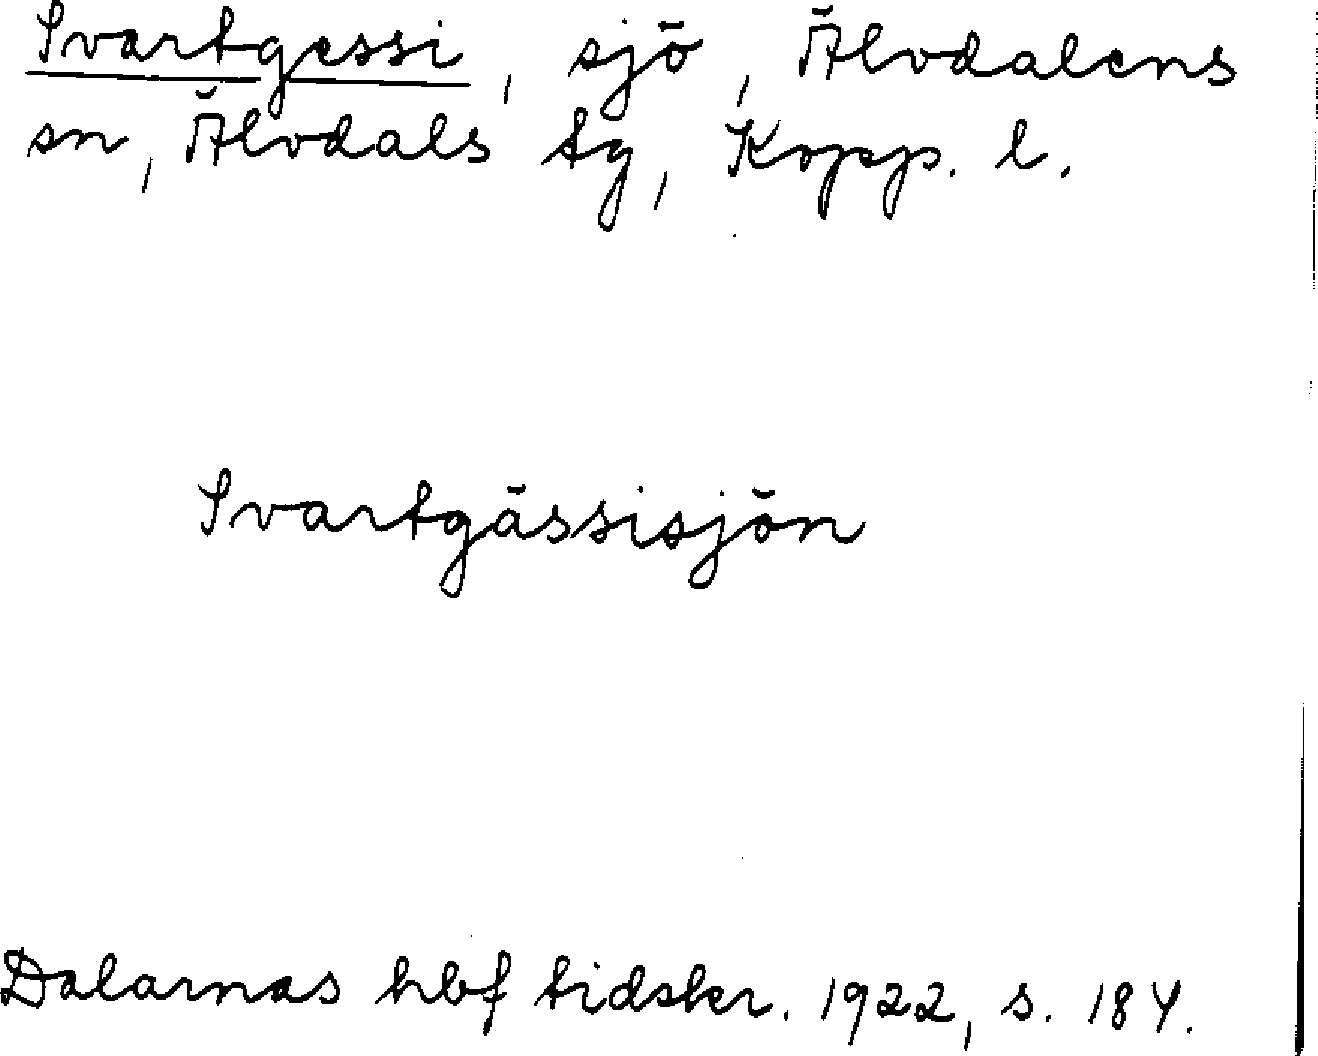 Svartgessi, sjö, Älvdalens
sn, Älvdals tg, Kopp. l.
Svartgässisjön
Dalarnas hbf tidskr. 1922, s. 184.